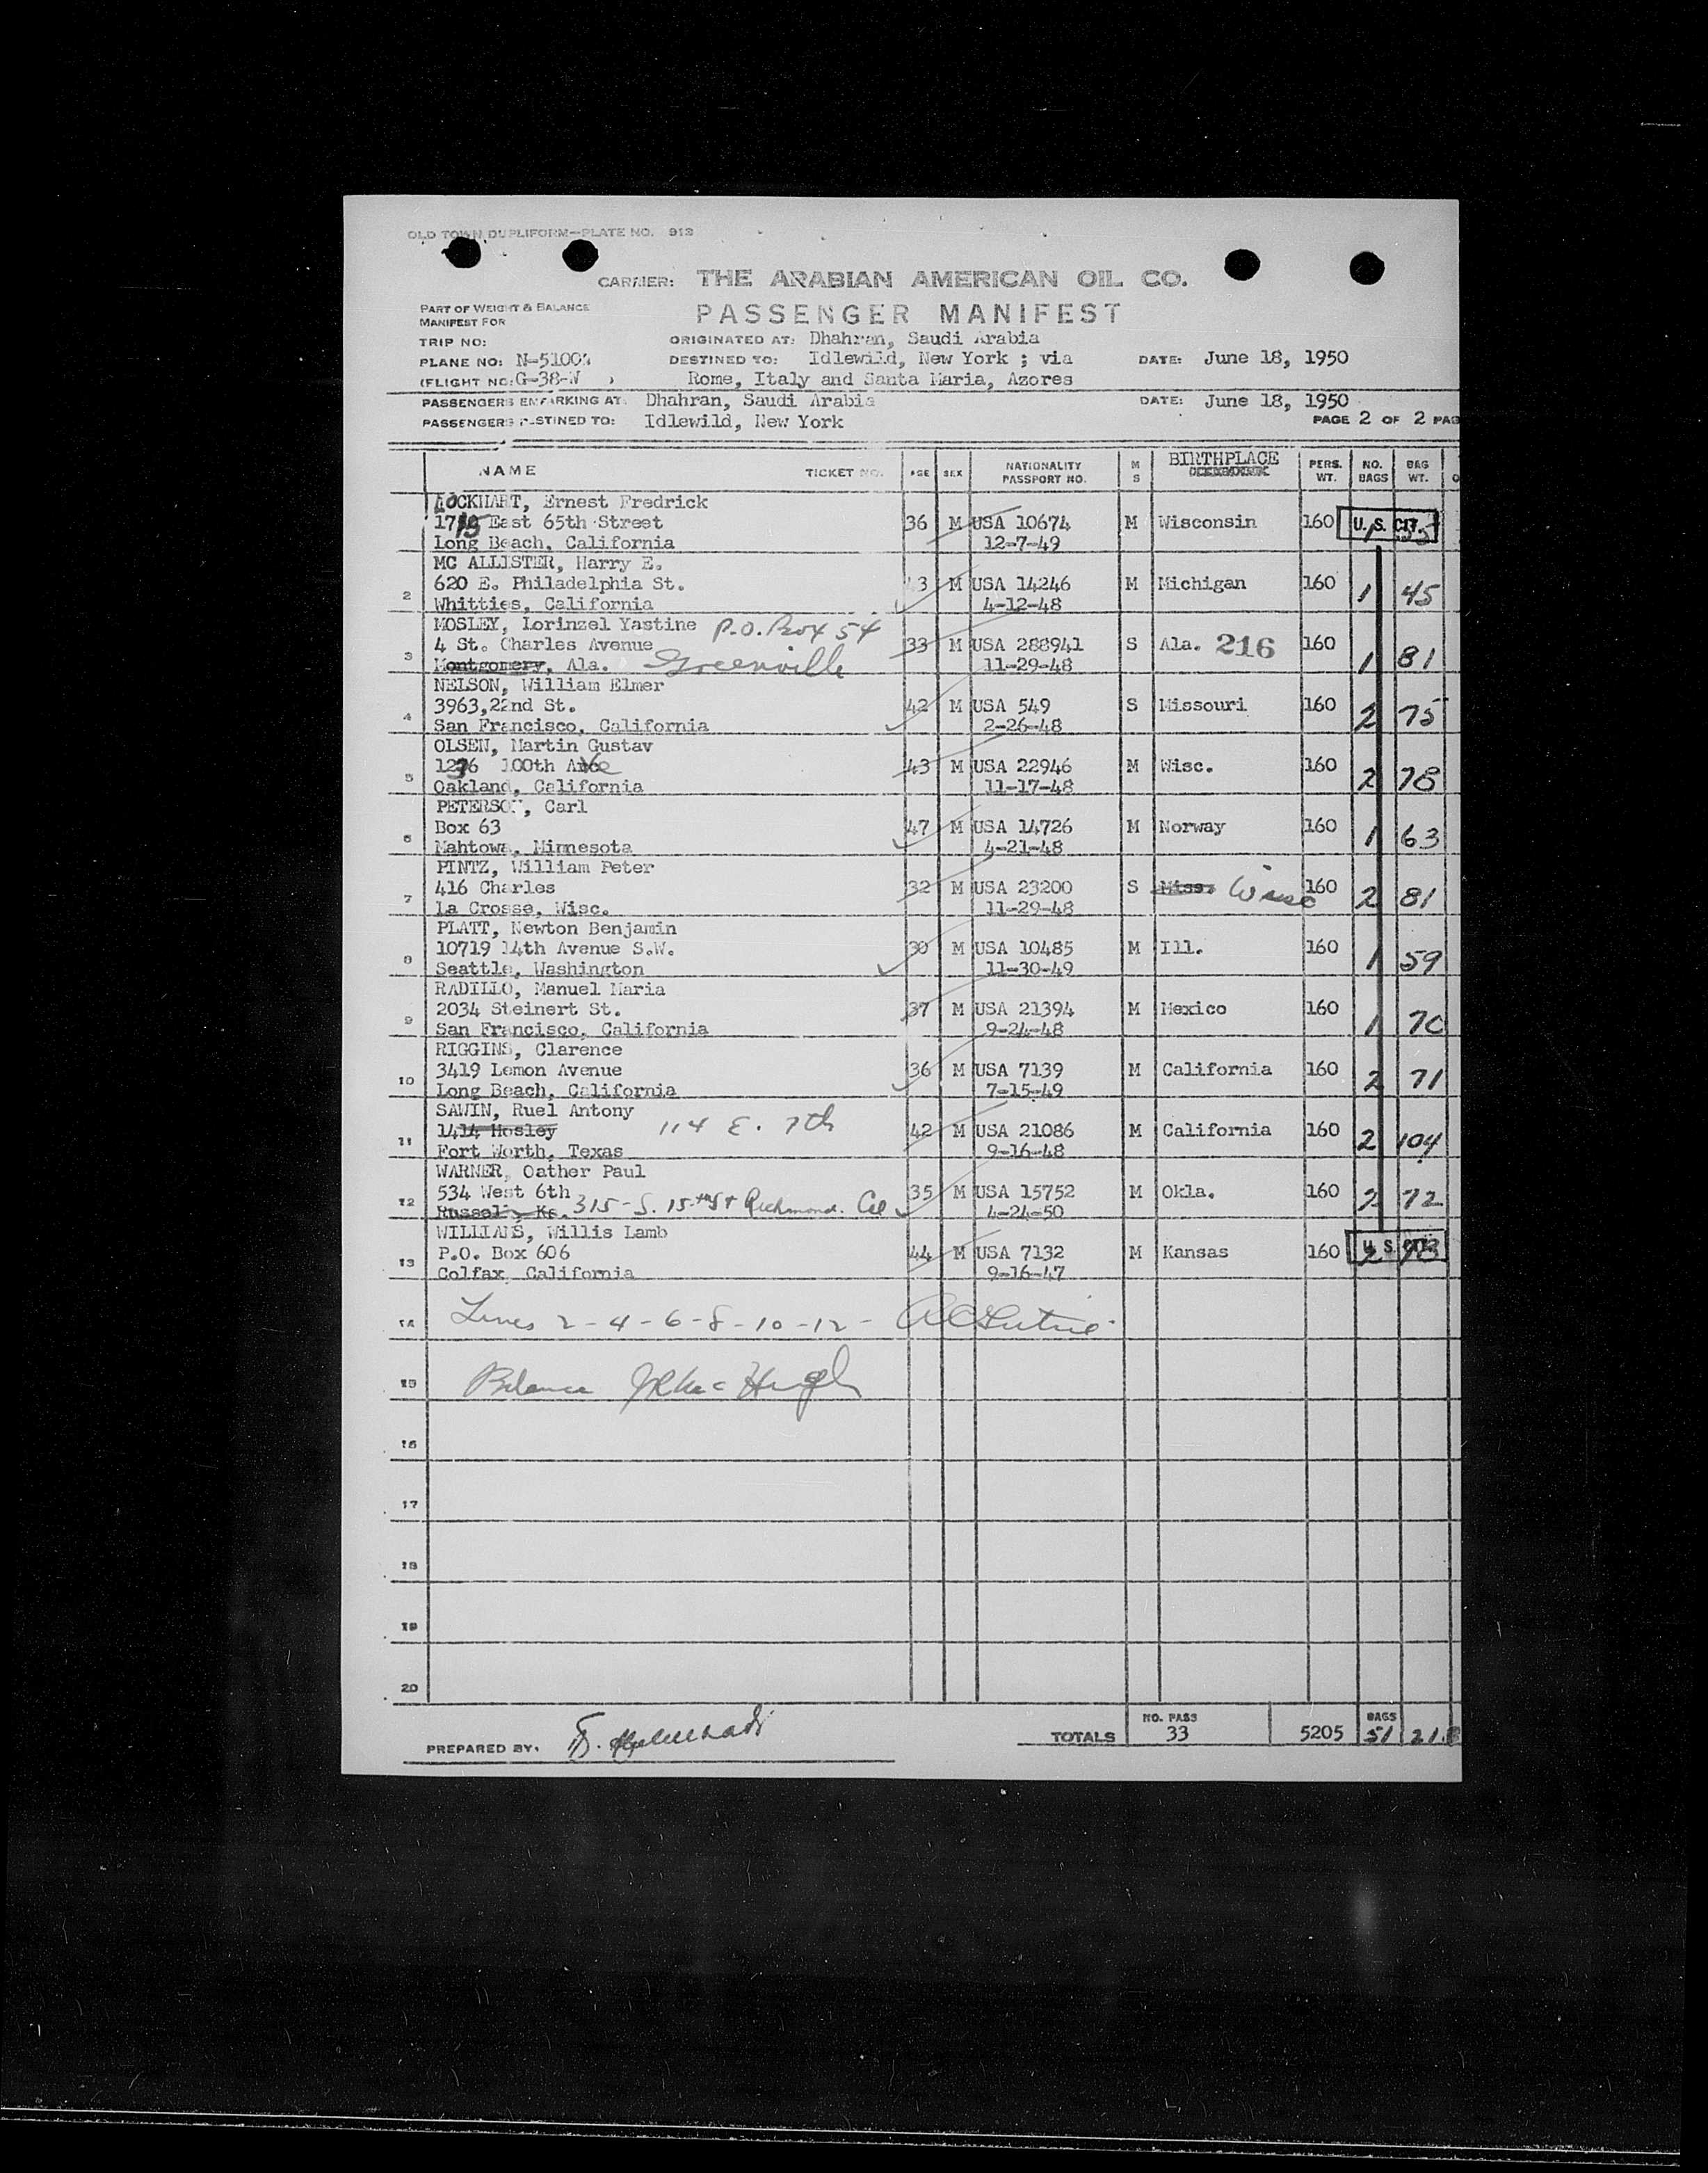 OLD TOWN DUPLIFORM—PLATE NO. 912
CARRIER: THE ARABIAN AMERICAN OIL CO.
PART OF WEIGHT & BALANCE
MANIFEST FOR
PASSENGER MANIFEST
TRIP NO:
ORIGINATED AT: Dhahran, Saudi Arabia
PLANE NO: N-5100
DESTINED TO: Idlewild, New York ; via
DATE: June 18, 1950
(FLIGHT NO: G-38-W )
Rome, Italy and Santa Maria, Azores
PASSENGERS EMBARKING AT: Dhahran, Saudi Arabia
DATE: June 18, 1950
PASSENGERS DESTINED TO: Idlewild, New York
PAGE 2 OF 2 PAG
NAME TICKET NO. AGE SEX NATIONALITY PASSPORT NO. M S BIRTHPLACE PERS. WT. NO. BAGS BAG WT.
LOCKHART, Ernest Fredrick
1715 East 65th Street 36 M USA 10674 M Wisconsin 160 U. S. CIT.
Long Beach, California 12-7-49
MC ALLISTER, Harry E.
2 620 E. Philadelphia St. 43 M USA 14246 M Michigan 160 1 45
Whitties, California 4-12-48
MOSLEY, Lorinzel Yastine P.O. Box 54
3 4 St. Charles Avenue 33 M USA 288941 S Ala. 216 160 1 81
Montgomery, Ala. Greenville 11-29-48
NELSON, William Elmer
4 3963,22nd St. 42 M USA 549 S Missouri 160 2 75
San Francisco, California 2-26-48
OLSEN, Martin Gustav
5 1236 100th Ave 43 M USA 22946 M Wisc. 160 2 78
Oakland, California 11-17-48
PETERSON, Carl
6 Box 63 47 M USA 14726 M Norway 160 1 63
Mahtowa, Minnesota 4-21-48
PINTZ, William Peter
7 416 Charles 32 M USA 23200 S Miss. Wisc 160 2 81
La Crosse, Wisc. 11-29-48
PLATT, Newton Benjamin
8 10719 14th Avenue S.W. 30 M USA 10485 M Ill. 160 1 59
Seattle, Washington 11-30-49
RADILLO, Manuel Maria
9 2034 Steinert St. 37 M USA 21394 M Mexico 160 1 70
San Francisco, California 9-24-48
RIGGINS, Clarence
10 3419 Lemon Avenue 36 M USA 7139 M California 160 2 71
Long Beach, California 7-15-49
SAWIN, Ruel Antony
11 1414 Hosley 114 E. 7th 42 M USA 21086 M California 160 2 104
Fort Worth, Texas 9-16-48
WARNER, Oather Paul
12 534 West 6th 35 M USA 15752 M Okla. 160 2 72
Russell, Ks. 315-S. 15th St Richmond. Cal 4-24-50
WILLIAMS, Willis Lamb
13 P.O. Box 606 44 M USA 7132 M Kansas 160 U. S. CIT.
Colfax, California 9-16-47
14 Lines 2-4-6-8-10-12-
15 Balance
16
17
18
19
20
PREPARED BY:
TOTALS NO. PASS 33 5205 BAGS 51